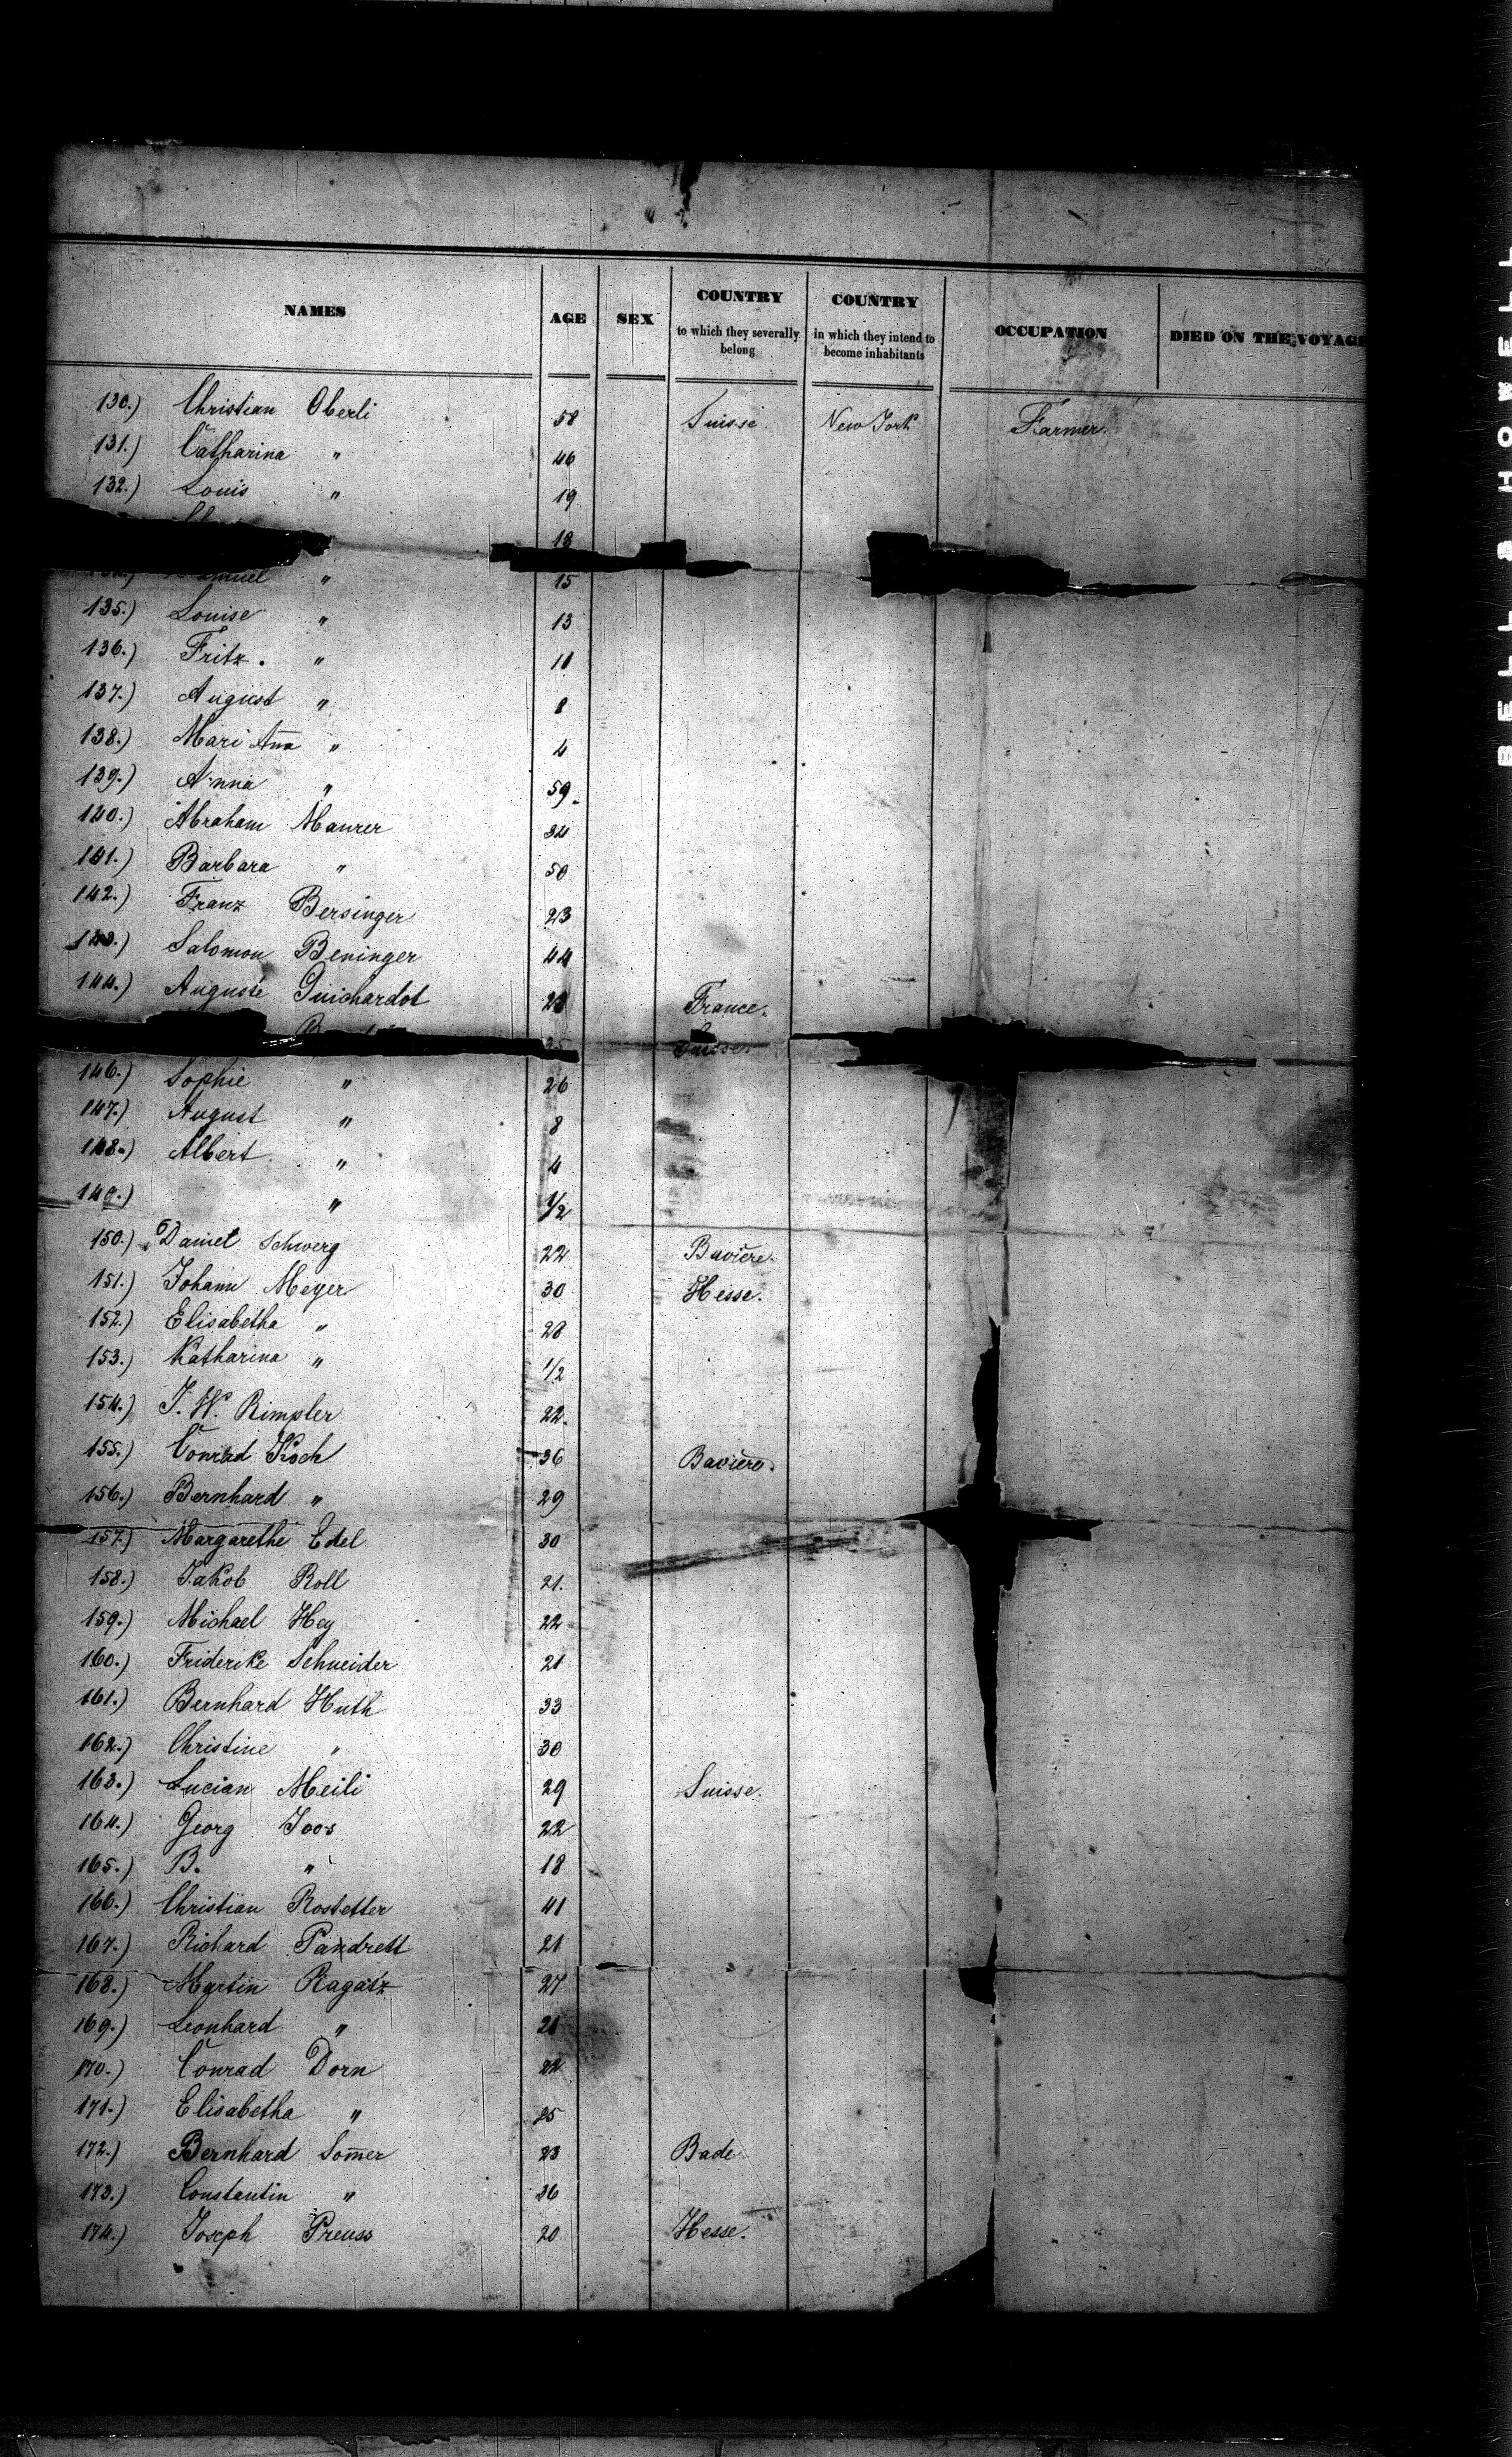 NAMES AGE SEX COUNTRY to which they severally belong COUNTRY in which they intend to become inhabitants OCCUPATION DIED ON THE VOYAGE
130.) Christian Oberli 58 Suisse. New York Farmer.
131.) Catharina " 46
132.) Louis " 19
18
" 15
135.) Louise " 13
136.) Fritz. " 11
137.) August " 8
138.) Mari Ana " 4
139.) Anna " 59.
140.) Abraham Maurer 34
141.) Barbara " 50
142.) Franz Bersinger 23
143.) Salomon Beninger 44
144.) Auguste Guichardot 28 France.
35 Suisse.
146.) Sophie " 26
147.) August " 8
148.) Albert " 4
149.) " 1/2
150.) Daniel Schwerg 22 Bavière.
151.) Johann Meyer 30 Hesse.
152.) Elisabetha " 28
153.) Katharina " 1/2
154.) J. W. Rimpler 22.
155.) Conrad Koch 36 Bavière.
156.) Bernhard " 29
157.) Margarethe Edel 30
158.) Jakob Roll 21.
159.) Michael Hey 22
160.) Friderike Schneider 21
161.) Bernhard Huth 33
162.) Christine " 30
163.) Lucian Meili 29 Suisse.
164.) Georg Joos 22
165.) B. " 18
166.) Christian Rostetter 41
167.) Richard Pandrett 21
168.) Martin Ragatz 27
169.) Leonhard "
170.) Conrad Dorn 22
171.) Elisabetha " 25
172.) Bernhard Somer 23 Bade
173.) Constantin " 26
174.) Joseph Preuss 20 Hesse.
BELL & HOWELL